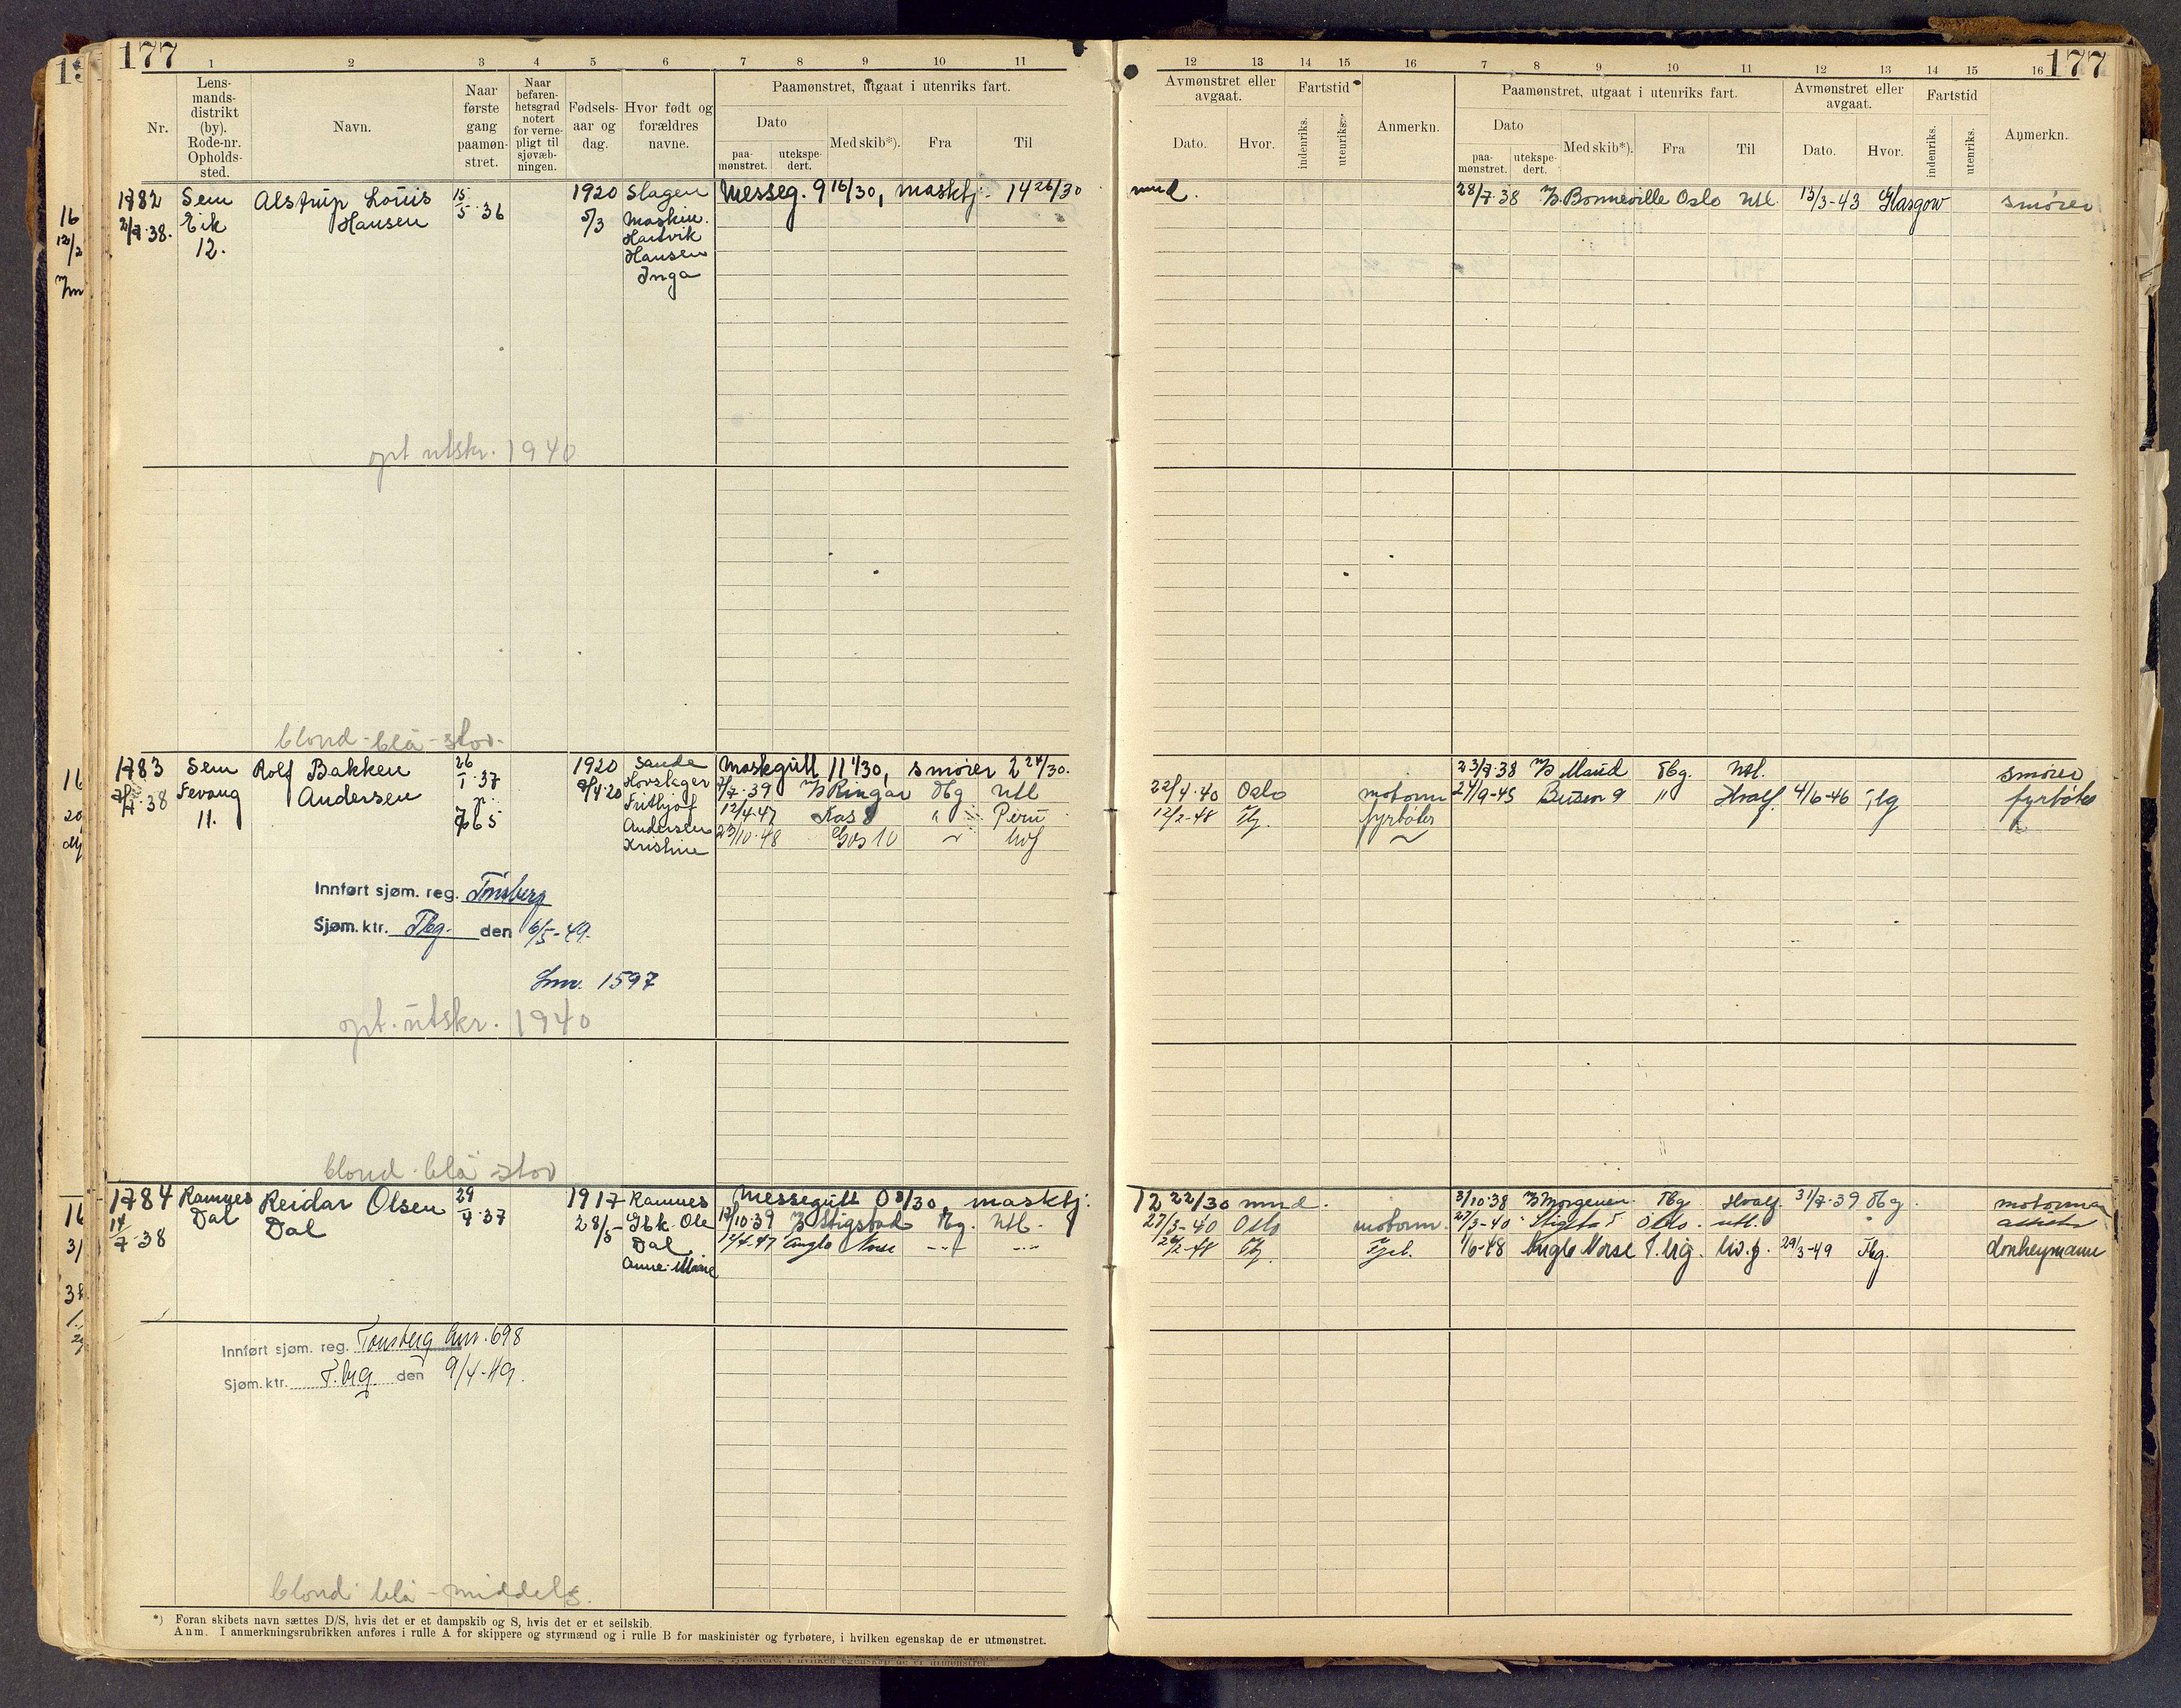 177
177
1 2 3 4 5 6 7 8 9 10 11
12 13 14 15 16 7 8 9 10 11 12 13 14 15 16
Nr.
Lens-
mands-
distrikt
(by).
Rode-nr.
Opholds-
sted.
Navn.
Naar
første
gang
paamøn-
stret.
Naar
befaren-
hetsgrad
notert
for verne-
pligt til
sjøvæb-
ningen.
Fødsels-
aar og
dag.
Hvor født og
forældres
navne.
Paamønstret, utgaat i utenriks fart.
Dato
paa-
mønstret.
utekspe-
dert.
Med skib*).
Fra
Til
Avmønstret eller
avgaat.
Dato.
Hvor.
Fartstid
indenriks.
utenriks.
Anmerkn.
Paamønstret, utgaat i utenriks fart.
Dato
paa-
mønstret.
utekspe-
dert.
Med skib*).
Fra
Til
Avmønstret eller
avgaat.
Dato.
Hvor.
Fartstid
indenriks.
utenriks.
Anmerkn.
1782 Sem Alstrup Louis 15/5 36 1920 Slagen Messeg. 9 16/30, maskfj. 14 26/30 mnd. 28/7 38 Bonneville Oslo Utl. 13/3-43 Glasgow smører
2/7 38. Eik Hansen 5/3 Maskin.
12. Hartvik
Hansen
Inga
opt utskr. 1940
blond-blå-stor.
1783 Sem Rolf Bakken 26/1 37 1920 Sande Maskgutt 11 1/30, smører 2 24/30. 23/7 38 Maud Tbg. Utl. smører
38 Fevang Andersen 7/4 20 Hovslager 7/7 39 Ringar Tbg Utl 22/4 40 Oslo motorm 24/9-45 9 " Hvalf. 4/6-46 Tbg fyrbøter
11. Frithjof 12/4-47 Kos 8 " Peru 12/2-48 Tbg. fyrbøter
765 Andersen 23/10-48 Gos 10 ~ hvf ~
Kristine
Innført sjøm. reg. Tønsberg
Sjøm. ktr. Tbg. den 6/5-49.
Lnr. 1597
opt. utskr. 1940
blond-blå stor
1784 Ramnes Reidar Olsen 29/4 37 1917 Ramnes Messegutt 0 8/30, maskfj. 12 22/30 mnd. 3/10 38 Morgenen Tbg Hvalf. 31/7-39 Tbg. motorman
14/7 38 Dal Dal 28/5 Gbk. Ole 17/10 39 Stigstad Tbg. Utl. 27/3-40 Oslo motorm. 27/3-40 Stigstad Oslo. utl.
Dal 12/4-47 Anglo Norse 26/2-48 Tbg. 1/6-48 Anglo Norse T.brg. hv.f. 29/3-49 Tbg. donkeymann
Anne Marie
Innført sjøm. reg. Tønsberg lnr. 698
Sjøm. ktr. T.brg. den 9/4-49.
blond blå - middels.
*) Foran skibets navn sættes D/S, hvis det er et dampskib og S, hvis det er et seilskib.
Anm. I anmerkningsrubrikken anføres i rulle A for skippere og styrmænd og i rulle B for maskinister og fyrbøtere, i hvilken egenskap de er utmønstret.